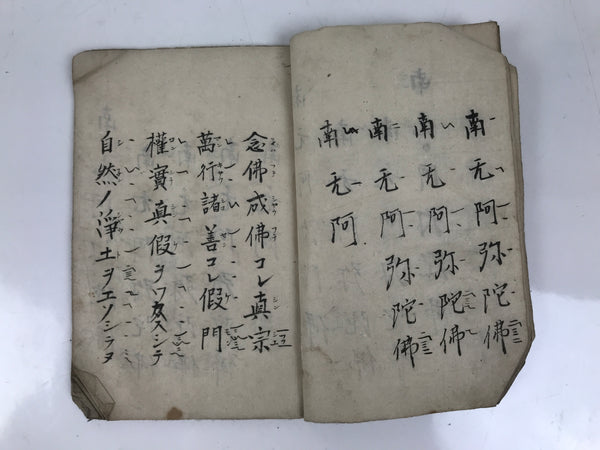 南无阿弥陀佛
南无阿弥陀佛
南无阿弥陀佛
南无阿
念佛成佛コレ真宗
萬行諸善コレ假門
權實真假ヲワカスシテ
自然ノ淨土ヲエソシラヌ